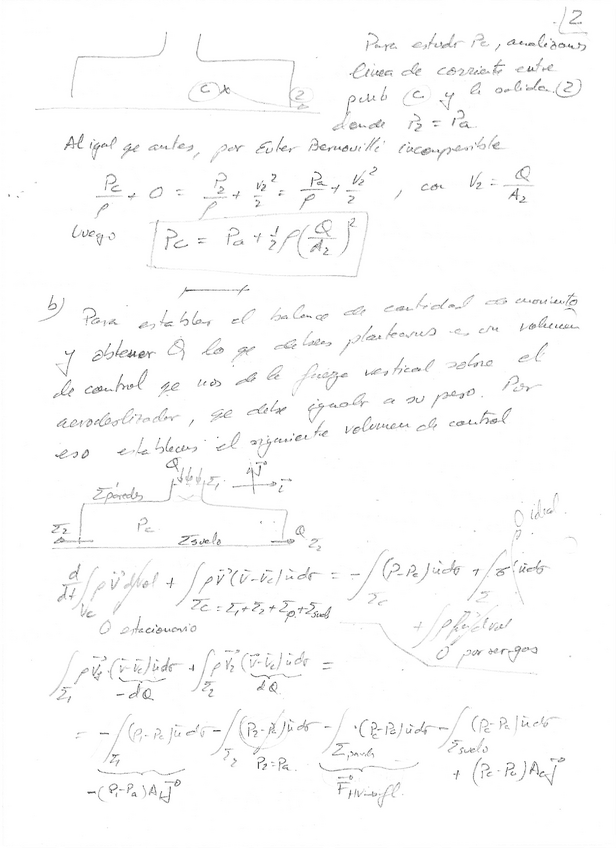 2
Para estudiar Pc, analizamos
línea de corriente entre
punto C y la salida (2)
donde P2 = Pa
C x
2
Al igual qe antes, por Euler Bernouilli incompresible
Pc/ρ + 0 = P2/ρ + V2²/2 = Pa/ρ + V2²/2 , con V2 = Q/A2
luego Pc = Pa + ½ ρ (Q/A2)²
b) Para establecer el balance de cantidad de movimiento
y obtener Q lo qe debemos plantearnos es un volumen
de control qe nos dé la fuerza vertical sobre el
aerodeslizador, qe debe igualar a su peso. Por
eso establecemos el siguiente volumen de control
Q Σ1 j i
Σparedes
Σ2 Pc Σsuelo Q Σ2
0 ideal
d/dt ∫Vc ρ v dvol + ∫Σc ρ v (v - vc) n dσ = - ∫Σc (P - Pa) n dσ + ∫Σ n dσ
Σc = Σ1 + Σ2 + Σp + Σsuelo
0 estacionario
+ ∫ ρ dvol
0 por ser gas
∫Σ1 ρ v1 (v - vc) n dσ + ∫Σ2 ρ v2 (v - vc) n dσ =
-dQ dQ
= - ∫Σ1 (P1 - Pa) n dσ - ∫Σ2 (P2 - Pa) n dσ - ∫Σparedes (P - Pa) n dσ - ∫Σsuelo (Pc - Pa) n dσ
P2 = Pa
-(P1 - Pa) A1 j
+ (Pc - Pa) Ac j